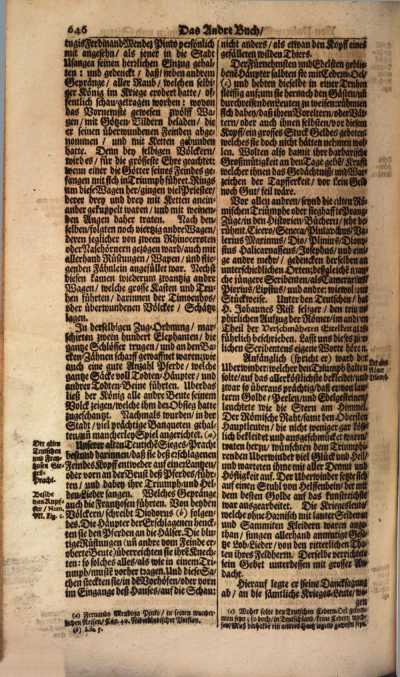 646
Das Andre Buch/
tugis Ferdinand Mendez Pinto persönlich
mit angesehn/ als jener in die Stadt
Usangea seinen herrlichen Einzug gehal-
ten: und gedenckt/ daß/ neben andrem
Gepränge/ aller Raub/ welchen selbi-
ger König im Kriege erobert hatte/ öf-
fentlich schau-getragen worden: wovon
das Vornemste gewesen zwölff Wä-
gen/ mit Götzen-Bildern beladen/ die
er seinen überwundenen Feinden abge-
nommen/ und mit Ketten gebunden
hatte. Denn bey selbigen Völckern/
wird es/ für die grösseste Ehre geachtet/
wenn einer die Götter seines Feindes ge-
fangen mit sich im Triumph führet. Rings
um diese Wägen her/ gingen viel Priester/
derer drey und drey mit Ketten anein-
ander gekuppelt waren/ und mit weinen-
den Augen daher traten. Nach den-
selben/ folgten noch viertzig andre Wägen/
deren jeglicher von zweyen Rhinocerten
oder Nasehörnern gezogen ward/ auch mit
allerhand Rüstungen/ Wapen/ und flie-
gender Fähnlein angefüllet war. Nechst
diesen kamen wiederum zwantzig andre
Wägen/ welche grosse Kasten und Tru-
hen führten/ darinnen der Timocuhos/
oder überwundenen Völcker/ Schätz
lagen.
In derselbigen Zug-Ordnung/ mar-
schirten zween hundert Elephanten/ die
gantze Schlösser trugen/ und an den Bac-
ken-Zähnen scharff gewaffnet waren; wie
auch eine gute Anzahl Pferde/ welche
gantze Säcke voll Todten-Häupter/ und
andere Todten-Beine führten. Uberdas
ließ der König alle andre Beute seinem
Volck zeigen/ welche ihm der Obsieg hatte
zugeschantzt. Nachmals wurden/ in der
Stadt/ viel prächtige Banqueten gehal-
ten/ und mancherley Spiel angerichtet. (a)
Unserer alten Teutschen Sieges-Pracht
bestund darinnen/ daß sie des erschlagenen
Feindes Kopff entweder auf einer Lantzen/
oder vorn an der Brust des Pferdes/ führ-
ten/ und dabey ihre Triumph- und Hel-
den-Lieder sangen. Welches Gepränge
auch die Frantzosen führten. Von beyden
Völckern/ schreibt Diodorus (b) folgen-
des. Die Häupter der Erschlagenen henck-
ten sie den Pferden an die Hälse. Die blu-
tige Rüstungen/ und andre vom Feinde er-
oberte Beute/ überreichten sie ihren Knech-
ten: so solches alles/ als wie in einem Tri-
umph/ musten vorher tragen. Und diese Sa-
chen steckten sie/ in den Vorhöfen/ oder vorn
im Eingange des Hauses/ auf die Schau:
Der alten
Teutschen
und Fran-
zosen Sie-
ges-
Pracht.
Besihe
das Kupf-
fer/ Num.
M. Fig. 1.
(a) Fernandus Mendoza Pinto/ in seinen wunder-
lichen Reisen/ Cap. 40. Niderländischer Version.
(b) Lib. 5.
nicht anders/ als etwan den Kopff eines
gefälleten wilden Thiers.
Der Fürnehmsten und Edelsten geblie-
bene Häupter salbten sie mit Cedern-Oel/
(c) und hebten dieselbe in einer Truhen
fleissig auf/ um sie hernach den Gästen und
durchreisenden Leuten zu weisen: rühmten
sich dabey/ daß ihren Vorältern/ oder Vät-
tern/ oder auch ihnen selbsten/ vor diesen
Kopff/ ein grosses Stuck Geldes geboten/
welches sie doch nicht hätten nehmen wol-
len. Wolten also damit ihre barbarische
Großmütigkeit an den Tage geben/ Krafft
welcher ihnen das Gedächtniß/ und War-
zeichen der Tapfferkeit/ vor kein Geld
noch Gut/ feil wäre.
Vor allen andren/ seynd die alten Rö-
mischen Triumphe oder sieghafft Prang-
Züge/ in den Historien-Büchern/ sehr be-
rühmt. Cicero/ Seneca/ Plutarchus/ Va-
lerius Maximus/ Dio/ Plinius/ Diony-
sius Halicarnasseus/ Josephus/ und eini-
ge andre mehr/ gedencken derselben an
unterschiedlichen Orten: desgleichen man-
che jüngere Scribenten/ als Camerarius/
Pierius/ Lipsius/ und andre; wiewol nur
Stückweise. Unter den Teutschen/ hat
H. Johannes Rist seliger/ den teur und
prächtigen Aufzug der Römer/ im andren
Theil der Verschmäheten Eitelkeit/ aus-
führlich beschrieben. Laßt uns dieses zier-
lichen Scribentens eigene Worte hören.
Anfänglich (spricht er) ward der
Uberwinder/ welcher den Triumph halten
solte/ auf das allerköstlichste bekleidet/ und
zwar so überaus prächtig/ daß er vor lau-
term Golde/ Perlen/ und Edelgesteinen/
leuchtete wie die Stern am Himmel.
Der Römische Raht/ samt den Obersten
Hauptleuten/ die nicht weniger gar köst-
lich bekleidet und ausgeschmückt waren/
traten herzu/ wünschten dem Triumphi-
renden Uberwinder viel Glück und Heil/
und warteten ihme mit aller Demut und
Höflichkeit auf. Der Uberwinder setzte sich
auf einen Stuhl von Helffenbein/ der mit
dem besten Golde auf das kunstreichste
war ausgearbeitet. Die Kriegesleute/
welche ohne Harnisch/ mit lauter Seidenen
und Sammiten Kleidern waren ange-
than/ sungen allerhand anmutige Ge-
sätz Lob-Lieder/ von den ritterlichen Tha-
ten ihres Feldherrn. Derselbe verrichtete
sein Gebet unterdessen mit grosser An-
dacht.
Hierauf legte er seine Dancksagung
ab/ an die sämtliche Krieges-Leute/ we-
gen
Der alten
Römer
Triumph.
(c) Woher solte den Teutschen Cedern-Oel gekom-
men seyn; so doch/ in Teutschland/ keine Cedern wach-